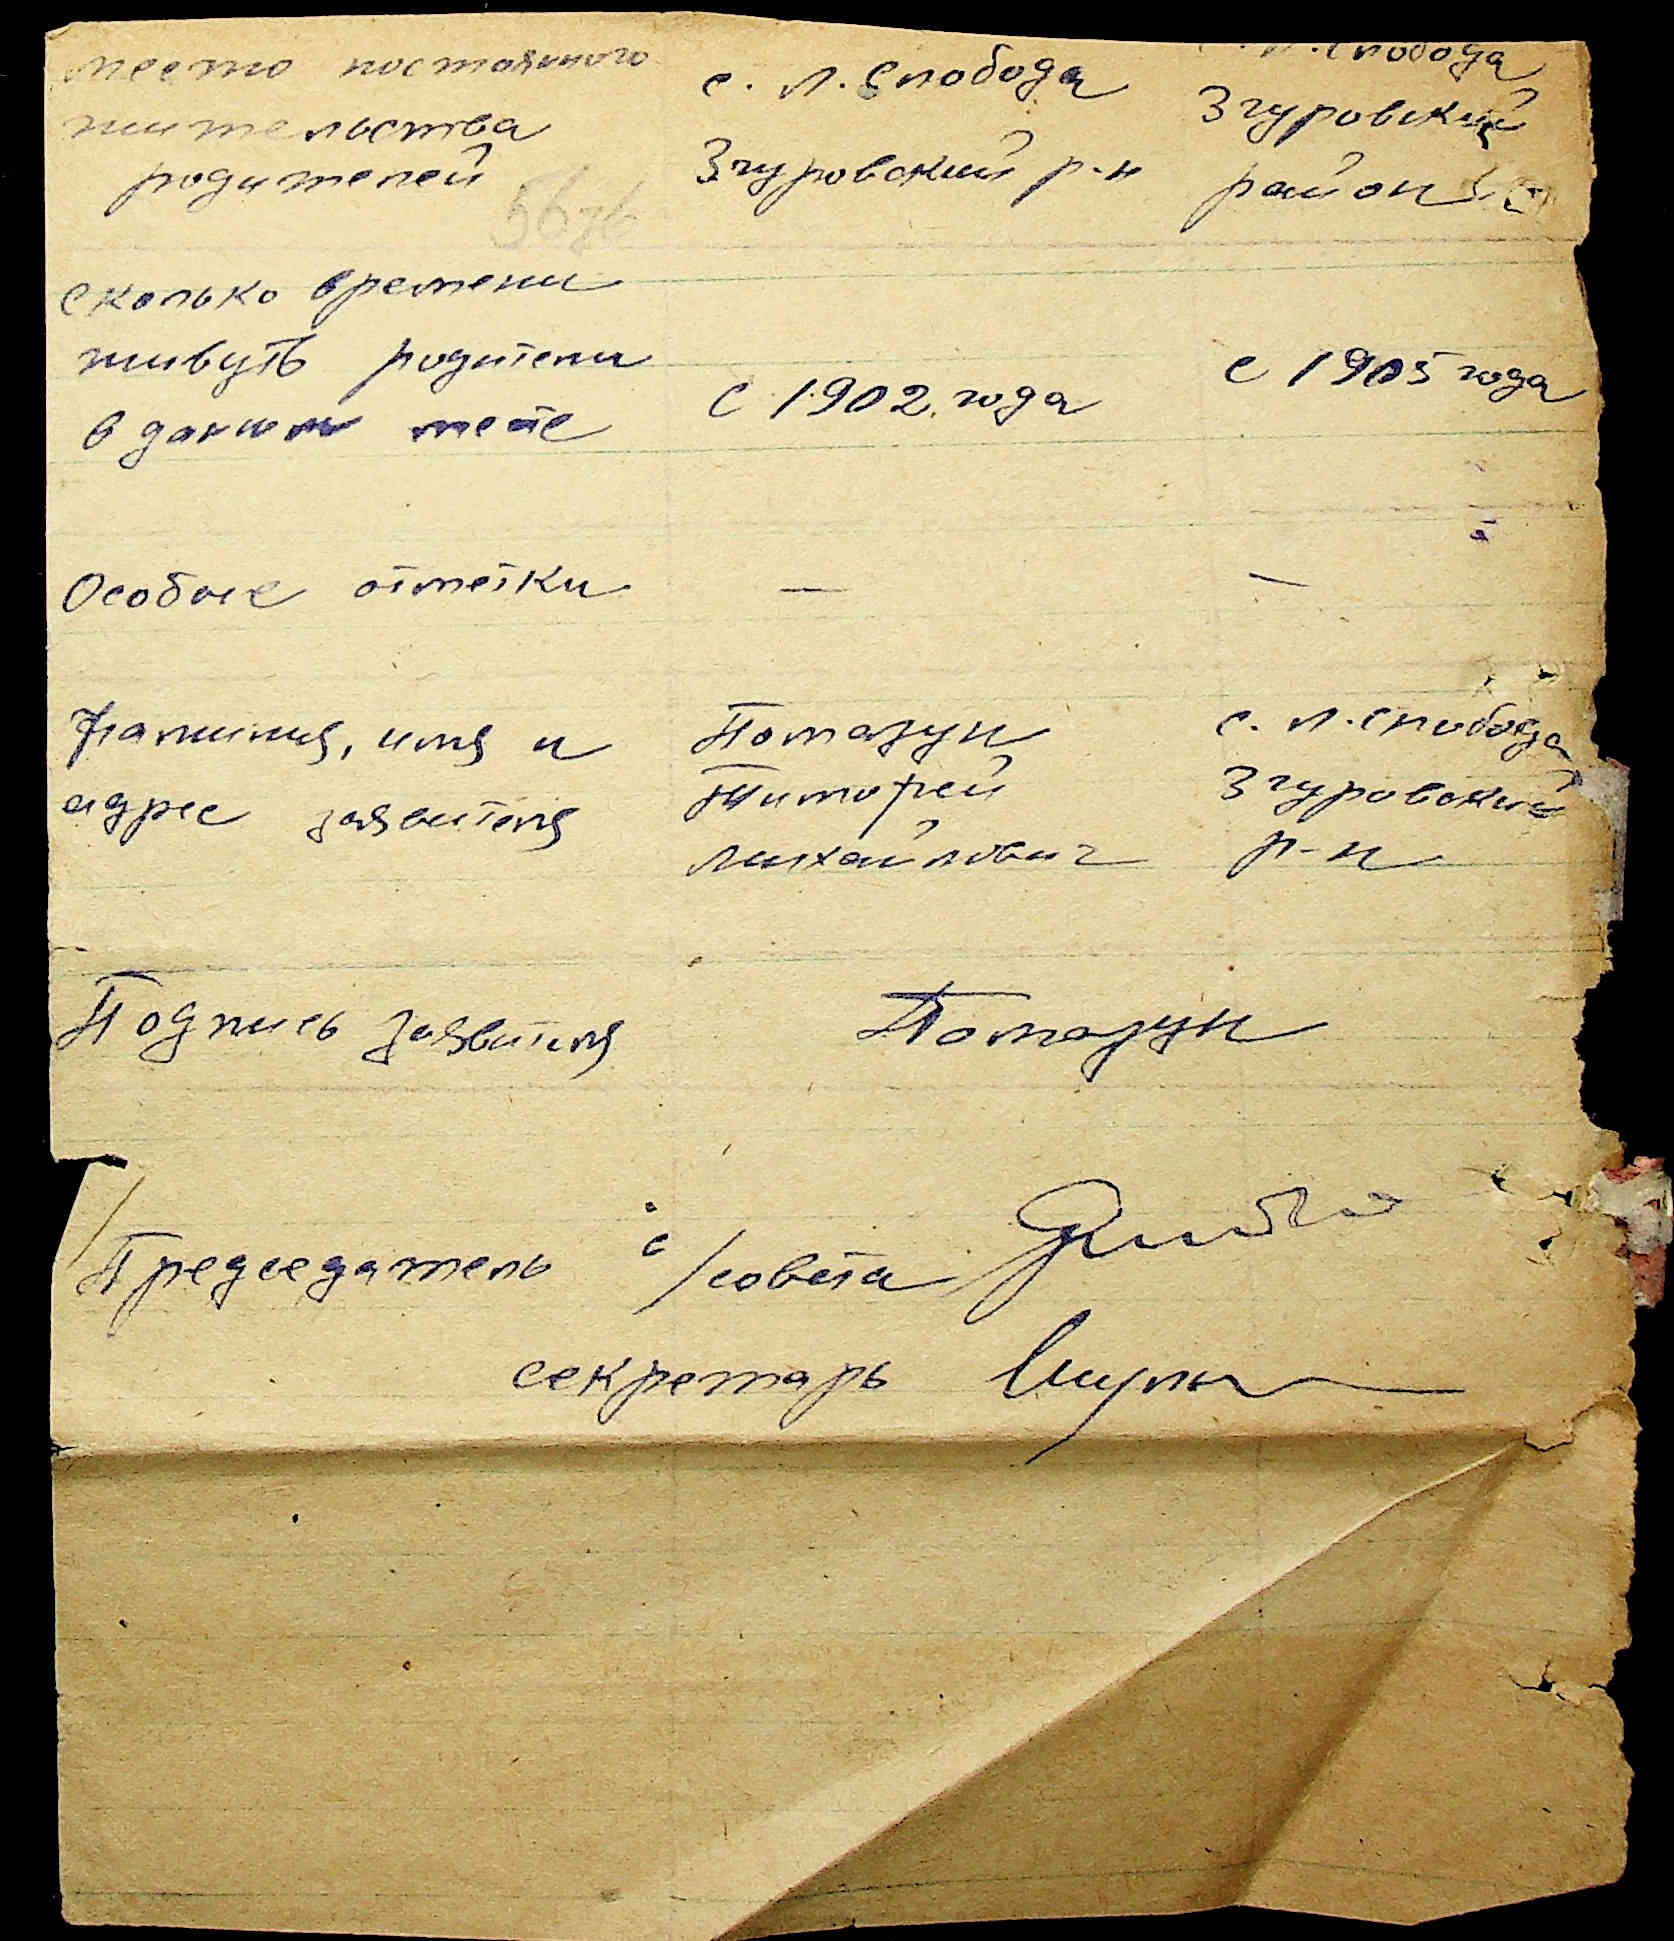 место постоянного
жительства
родителей
с. Л. Слобода
Згуровский р-н
Л. Слобода
Згуровский
район
сколько времени
живуть родители
в данном месте
с 1902 года
с 1905 года
Особые отметки
—
—
Фамилия, имя и
адрес заявителя
Помазун
Тимофей
Михайлович
с. Л. Слобода
Згуровский
р-н
Подпись заявителя
Помазун
Председатель с/совета
секретарь